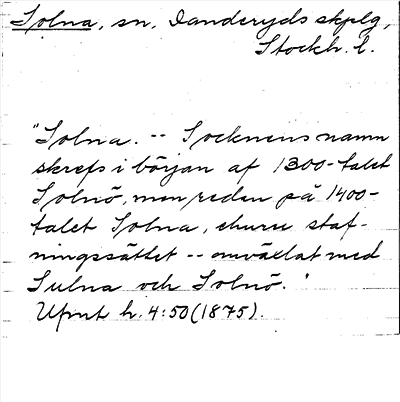 Solna, sn, Danderyds skplg,
Stockh. l.
"Solna. -- Socknens namn
skrefs i början af 1300-talet
Solnö, men redan på 1400-
talet Solna, ehuru staf-
ningssättet -- omväxlat med
Sulna och Solnö."
Ufmt h. 4:50 (1875).